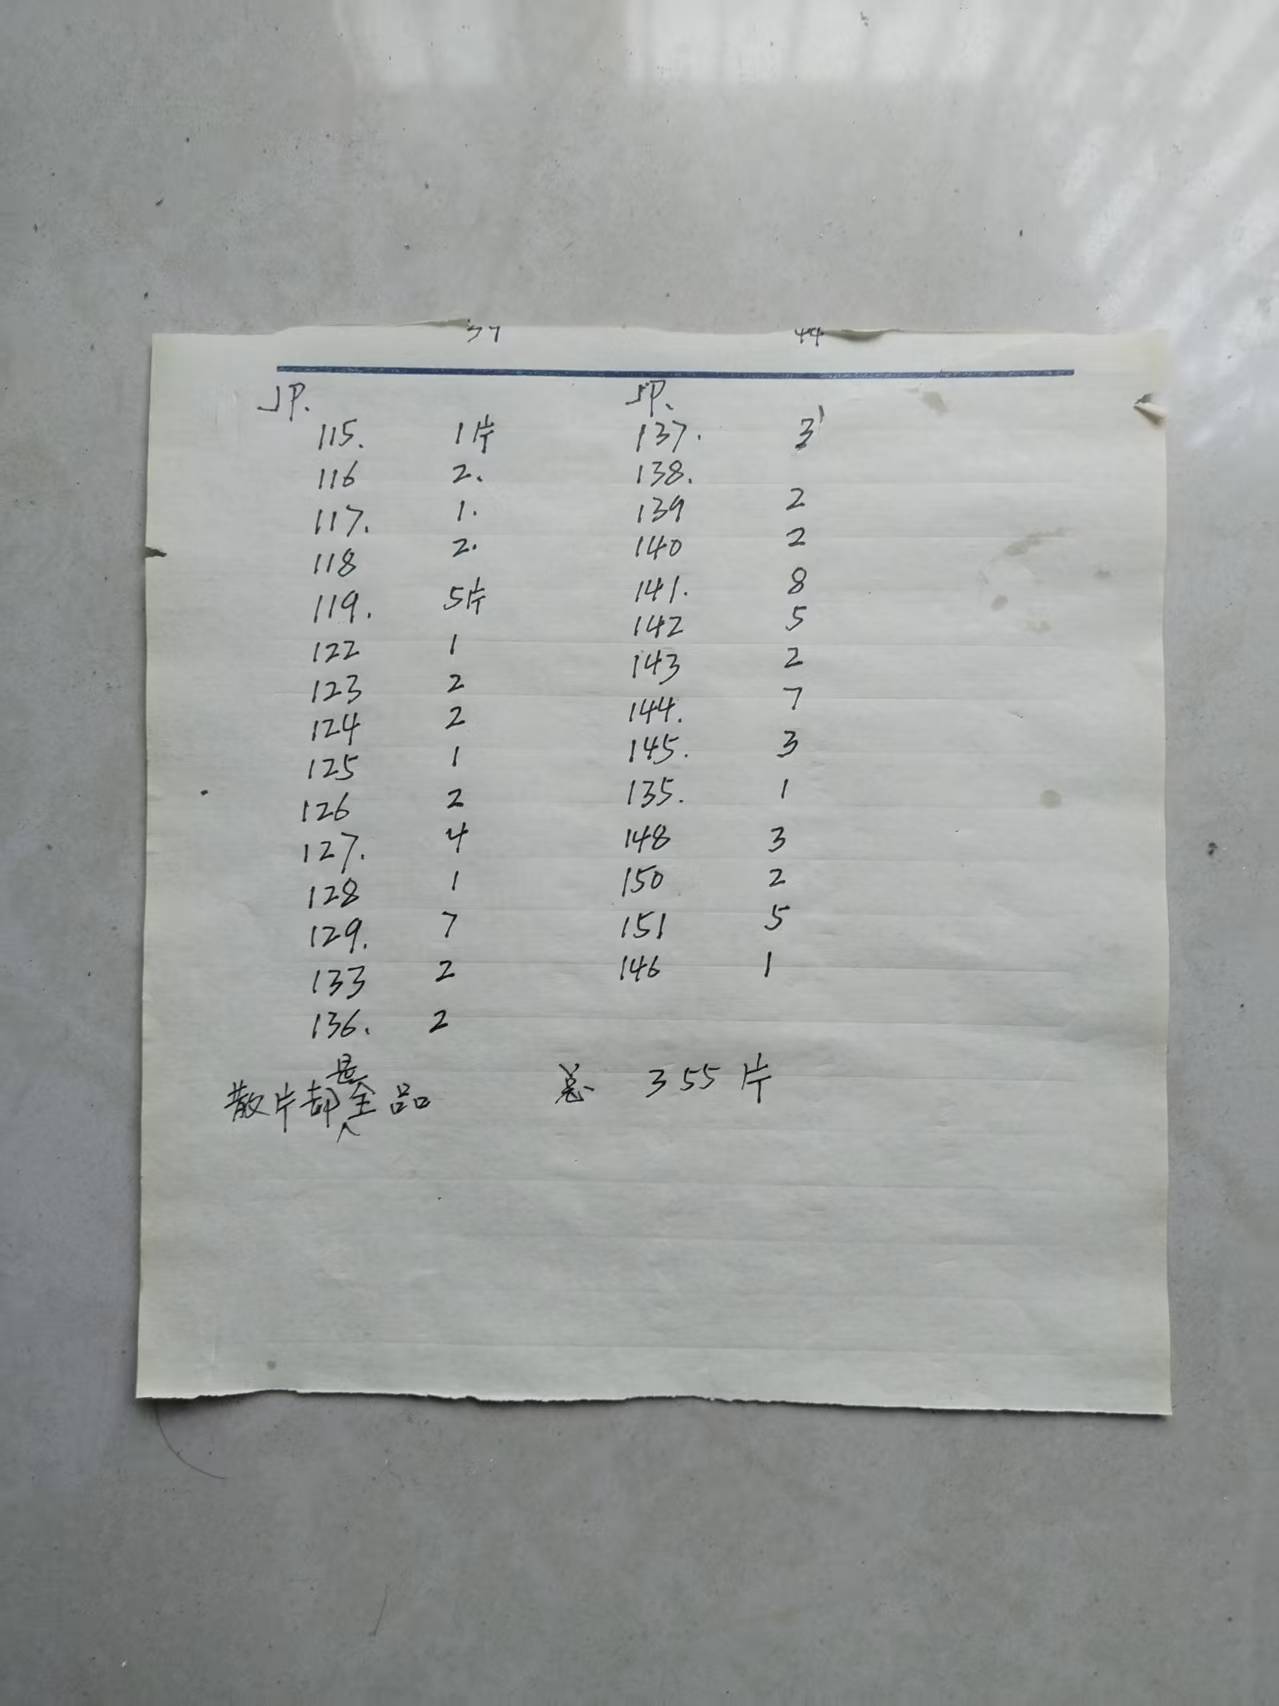 37 44
JP. JP.
115. 1片 137. 3
116 2. 138.
117. 1. 139 2
118 2. 140 2
119. 5片 141. 8
122 1 142 5
123 2 143 2
124 2 144. 7
125 1 145. 3
126 2 135. 1
127. 4 148 3
128 1 150 2
129. 7 151 5
133 2 146 1
136. 2
散片都是全品 总 355片